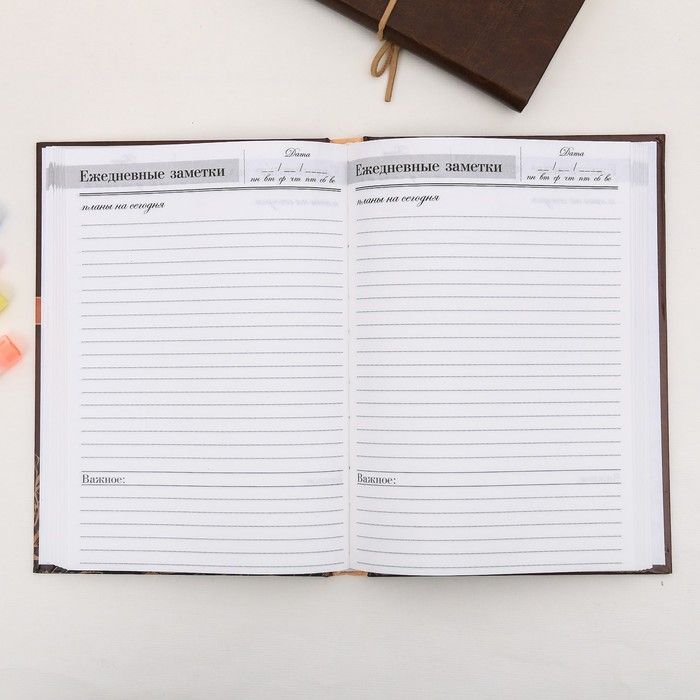 Ежедневные заметки
Дата
__/__/____
пн вт ср чт пт сб вс
планы на сегодня
Важное:
Ежедневные заметки
Дата
__/__/____
пн вт ср чт пт сб вс
планы на сегодня
Важное: